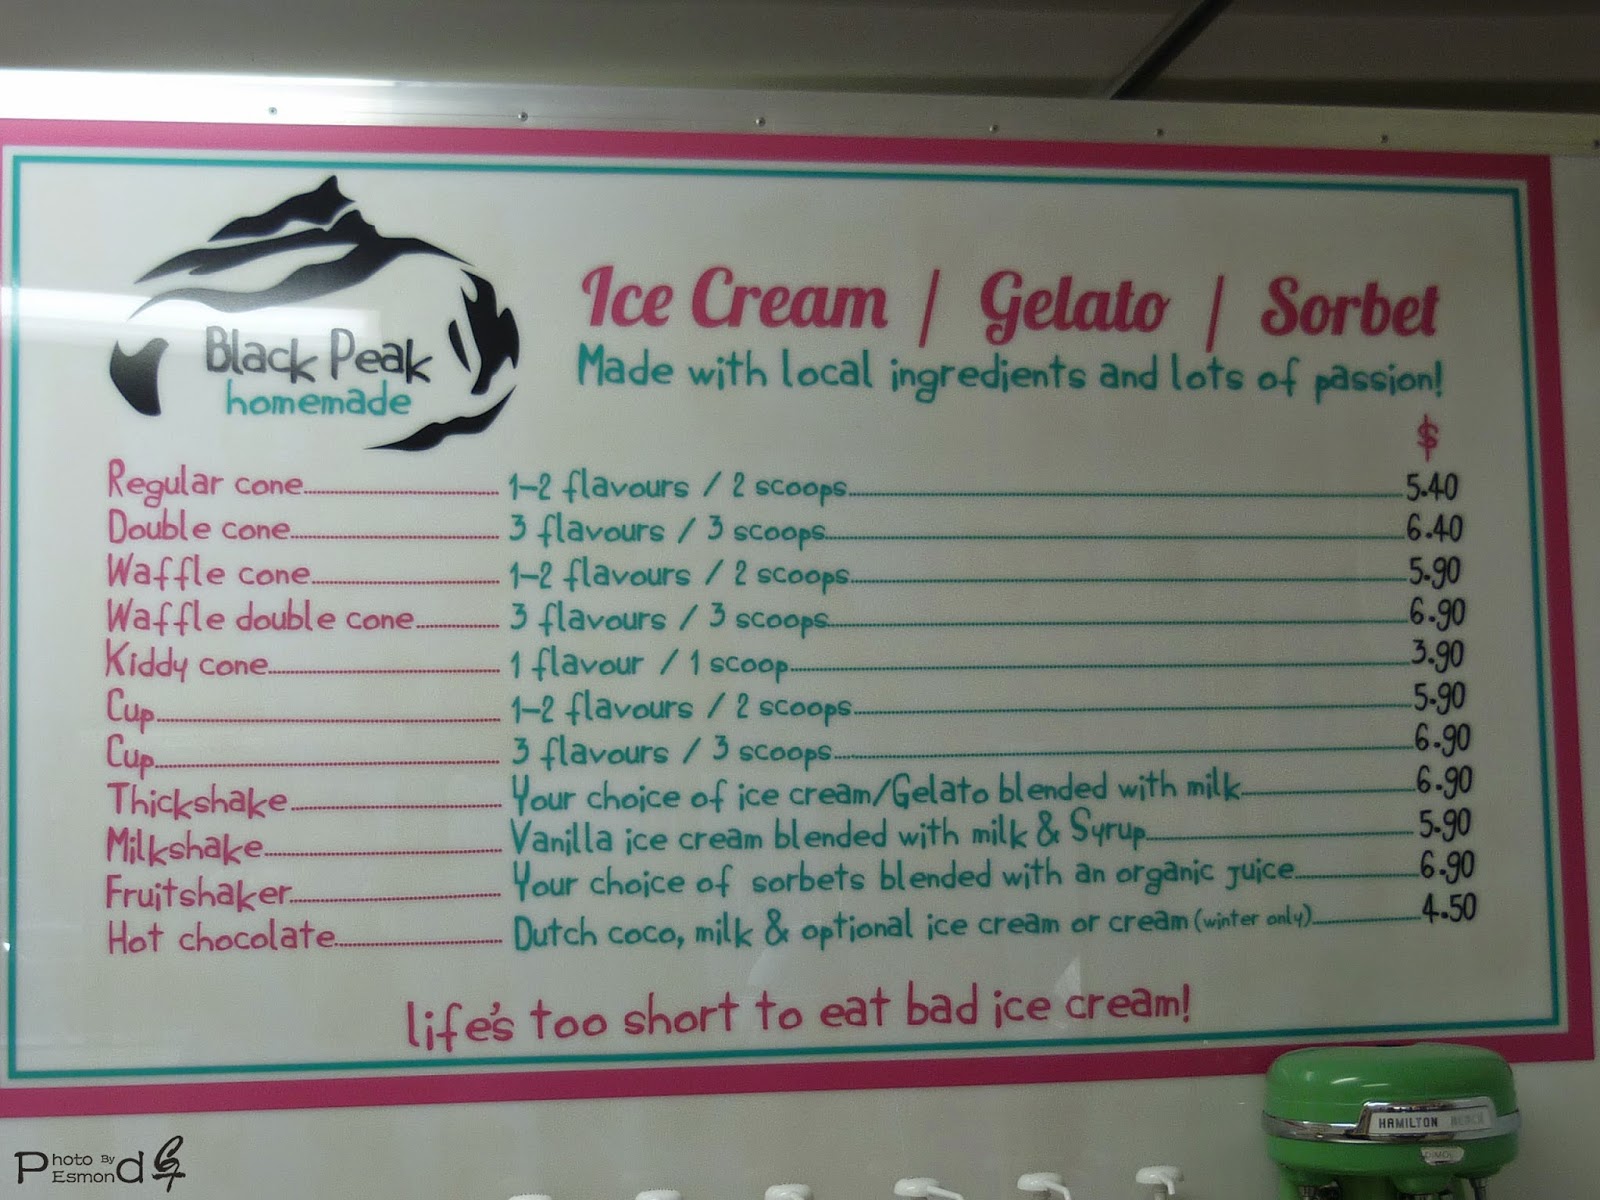 Black Peak
homemade
Ice Cream / Gelato / Sorbet
Made with local ingredients and lots of passion!
$
Regular cone 1-2 flavours / 2 scoops 5.40
Double cone 3 flavours / 3 scoops 6.40
Waffle cone 1-2 flavours / 2 scoops 5.90
Waffle double cone 3 flavours / 3 scoops 6.90
Kiddy cone 1 flavour / 1 scoop 3.90
Cup 1-2 flavours / 2 scoops 5.90
Cup 3 flavours / 3 scoops 6.90
Thickshake Your choice of ice cream/Gelato blended with milk 6.90
Milkshake Vanilla ice cream blended with milk & Syrup 5.90
Fruitshaker Your choice of sorbets blended with an organic juice 6.90
Hot chocolate Dutch coco, milk & optional ice cream or cream (winter only) 4.50
life's too short to eat bad ice cream!
HAMILTON BEACH
Photo By
Esmond